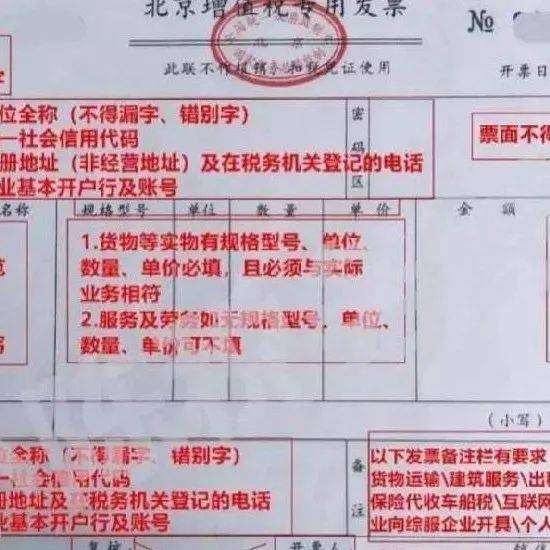 北京增值税专用发票
№
此联不作报销、扣税凭证使用
开票日
字
位全称（不得漏字、错别字）
一社会信用代码
册地址（非经营地址）及在税务机关登记的电话
业基本开户行及账号
密码区
票面不得
名称 规格型号 单位 数量 单价 金额
1.货物等实物有规格型号、单位、
数量、单价必填，且必须与实际
业务相符
2.服务及劳务如无规格型号、单位、
数量、单价可不填
（小写）
位全称（不得漏字、错别字）
一社会信用代码
册地址及在税务机关登记的电话
业基本开户行及账号
备注
以下发票备注栏有要求
货物运输\建筑服务\出租
保险代收车船税\互联网
业向综服企业开具\个人
复核： 开票人：